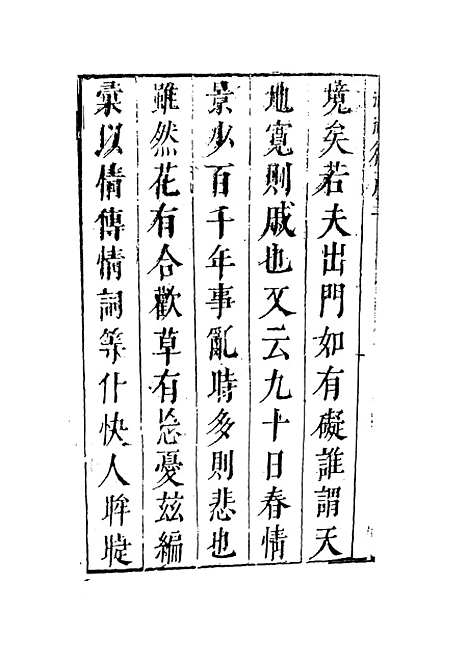 境矣若夫出門如有礙誰謂天
地寬則戚也又云九十日春情
景少百千年事亂時多則悲也
雖然花有合歡草有忘憂茲編
彙以情傳情詞等什快人眸睫